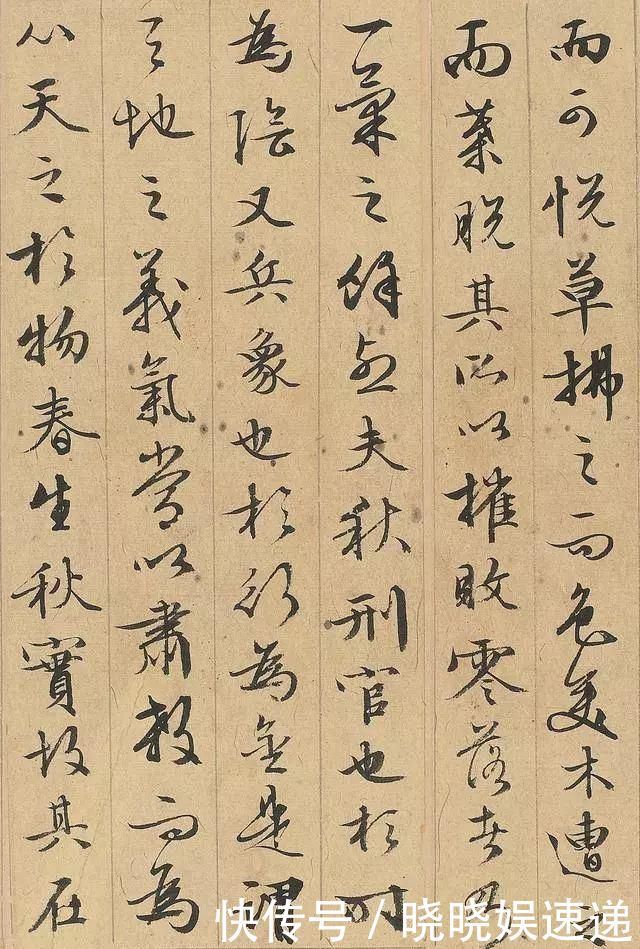 而可悅草拂之而色變木遭之
而葉脫其所以摧敗零落者乃
一氣之餘烈夫秋刑官也於時
為陰又兵象也於行為金是謂
天地之義氣常以肅殺而為
心天之於物春生秋實故其在
快传号／晓晓娱速递